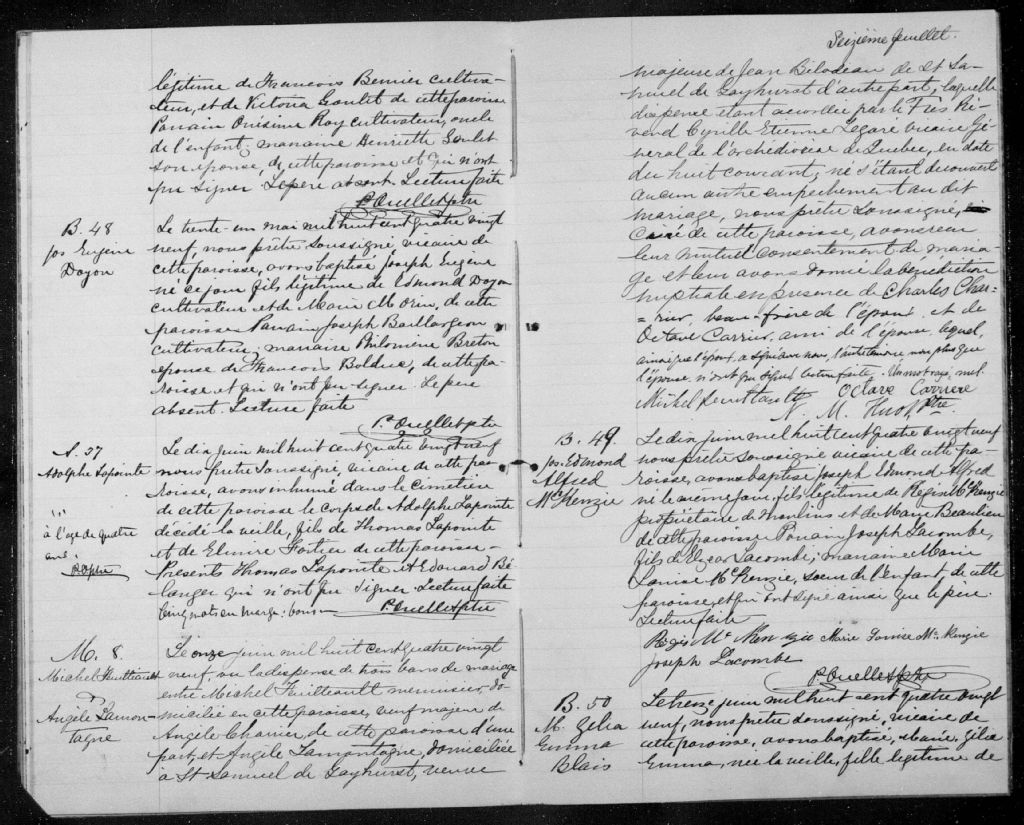 légitime de Francois Bernier cultiva-
teur, et de Victoria Goulet de cette paroisse
Parrain Onisime Roy cultivateur, oncle
de l'enfant; marraine Henriette Goulet
son épouse, de cette paroisse et qui n'ont
pu signer. Le père absent. Lecture faite
P. Ouellet ptre
B. 48
Jos Eugène
Doyon
Le trente-un mai mil huit cent quatre vingt
neuf, nous prêtre soussigné vicaire de
cette paroisse, avons baptisé Joseph Eugène
né ce jour fils légitime de Edmond Doyon
cultivateur et de Marie Morin, de cette
paroisse Parrain Joseph Baillargeon
cultivateur; marraine Philomène Breton
épouse de Francois Bolduc, de cette pa-
roisse et qui n'ont pu signer. Le père
absent. Lecture faite
P. Ouellet ptre
S. 37
Adolphe Lapointe
à l'age de quatre
ans.
P.O ptre
Le dix juin mil huit cent quatre vingt neuf
nous prêtre soussigné, vicaire de cette pa-
roisse, avons inhumé dans le cimetière
de cette paroisse le corps de Adolphe Lapointe
décédé la veille, fils de Thomas Lapointe
et de Elmire Fortier de cette paroisse-
Présents Thomas Lapointe et Edouard Bé-
langer qui n'ont pu signer. Lecture faite
Cinq mots en marge: bons
P. Ouellet ptre
M. 8.
Michel
Angèle Lamon-
tagne
Le onze juin mil huit cent quatre vingt
neuf, vu la dispense de trois bans de mariage
entre Michel meunier, do-
micilié en cette paroisse, veuf majeur de
Angèle Charrier, de cette paroisse d'une
part, et Angèle Lamontagne, domiciliée
à St Samuel de Gayhurst, veuve
Seizième feuillet.
majeure de Jean Bilodeau de St Sa-
muel de Gayhurst d'autre part, laquelle
dispense étant accordée par le Très Ré-
vérend Cyrille Etienne Légaré vicaire Gé-
néral de l'archidiocèse de Québec, en date
du huit courant; ne s'étant découvert
aucun autre empêchement au dit
mariage, nous prêtre soussigné,
Curé de cette paroisse, avons reçu
leur mutuel consentement de maria-
ge et leur avons donné la bénédiction
nuptiale en présence de Charles Char-
=rier, beau-frère de l'époux et de
Octave Carrier, ami de l'épouse, lequel,
ainsi que l'époux, a signé avec nous, l'autre témoin, non plus que
l'épouse, n'ont pu signer. Lecture faite. Un mot rayé, nul.
Michel
Octave Carriere
N. M. Huot, Ptre.
B. 49.
Jos. Edmond
Alfred
McKenzie
Le dix juin mil huit cent quatre vingt neuf
nous prêtre soussigné vicaire de cette pa-
roisse, avons baptisé Joseph Edmond Alfred
né le même jour, fils légitime de Régis McKenzie
propriétaire de moulins et de Marie Beaulieu
de cette paroisse Parrain Joseph Lacombe,
fils de Lacombe; marraine Marie
Louise McKenzie, soeur de l'enfant, de cette
paroisse, et qui ont signé ainsi que le père.
Lecture faite
Régis McKenzie Marie Louise McKenzie
Joseph Lacombe
P. Ouellet ptre
B. 50
M. Zélia
Emma
Blais
Le treize juin mil huit cent quatre vingt
neuf, nous prêtre soussigné, vicaire de
cette paroisse, avons baptisé, Marie, Zélia
Emma, née la veille, fille légitime de